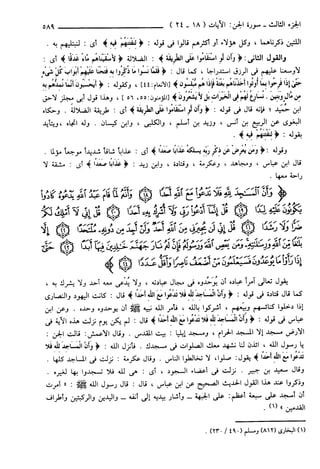 الجزء الثالث - سورة الجن: الآيات ( ١٨ - ٢٤ ) ٥٨٩
اللتين ذكرناهما ، وكل هؤلاء أو أكثرهم قالوا فى قوله : ﴿ لِنَفْتِنَهُمْ فِيهِ ﴾ أى : لنبتليهم به .
والقول الثانى : ﴿ وَأَن لَّوِ اسْتَقَامُوا عَلَى الطَّرِيقَةِ ﴾ أى : الضلالة ﴿ لَأَسْقَيْنَاهُم مَّاءً غَدَقًا ﴾ أى :
لأوسعنا عليهم فى الرزق استدراجا ، كما قال : ﴿ فَلَمَّا نَسُوا مَا ذُكِّرُوا بِهِ فَتَحْنَا عَلَيْهِمْ أَبْوَابَ كُلِّ شَيْءٍ
حَتَّىٰ إِذَا فَرِحُوا بِمَا أُوتُوا أَخَذْنَاهُم بَغْتَةً فَإِذَا هُم مُّبْلِسُونَ ﴾ [الأنعام: ٤٤] ، وكقوله : ﴿ أَيَحْسَبُونَ أَنَّمَا نُمِدُّهُم بِهِ
مِن مَّالٍ وَبَنِينَ . نُسَارِعُ لَهُمْ فِي الْخَيْرَاتِ بَل لَّا يَشْعُرُونَ ﴾ [المؤمنون: ٥٥ ، ٥٦] ، وهذا قول أبى مجلز لاحق
ابن حُمَيد ؛ فإنه قال فى قوله : ﴿ وَأَن لَّوِ اسْتَقَامُوا عَلَى الطَّرِيقَةِ ﴾ أى : طريقة الضلالة . وحكاه
البغوى عن الربيع بن أنس ، وزيد بن أسلم ، والكلبى ، وابن كيسان . وله اتجاه ، ويتأيد
بقوله : ﴿ لِنَفْتِنَهُمْ فِيهِ ﴾ .
وقوله : ﴿ وَمَن يُعْرِضْ عَن ذِكْرِ رَبِّهِ يَسْلُكْهُ عَذَابًا صَعَدًا ﴾ أى : عذاباً شاقاً شديداً موجعاً مؤلما .
قال ابن عباس ، ومجاهد ، وعكرمة ، وقتادة ، وابن زيد : ﴿ عَذَابًا صَعَدًا ﴾ أى : مشقة لا
راحة معها .
﴿ وَأَنَّ الْمَسَاجِدَ لِلَّهِ فَلَا تَدْعُوا مَعَ اللَّهِ أَحَدًا ﴿١٨﴾ وَأَنَّهُ لَمَّا قَامَ عَبْدُ اللَّهِ يَدْعُوهُ كَادُوا
يَكُونُونَ عَلَيْهِ لِبَدًا ﴿١٩﴾ قُلْ إِنَّمَا أَدْعُو رَبِّي وَلَا أُشْرِكُ بِهِ أَحَدًا ﴿٢٠﴾ قُلْ إِنِّي لَا أَمْلِكُ لَكُمْ
ضَرًّا وَلَا رَشَدًا ﴿٢١﴾ قُلْ إِنِّي لَن يُجِيرَنِي مِنَ اللَّهِ أَحَدٌ وَلَنْ أَجِدَ مِن دُونِهِ مُلْتَحَدًا ﴿٢٢﴾
إِلَّا بَلَاغًا مِّنَ اللَّهِ وَرِسَالَاتِهِ وَمَن يَعْصِ اللَّهَ وَرَسُولَهُ فَإِنَّ لَهُ نَارَ جَهَنَّمَ خَالِدِينَ فِيهَا أَبَدًا ﴿٢٣﴾ حَتَّىٰ
إِذَا رَأَوْا مَا يُوعَدُونَ فَسَيَعْلَمُونَ مَنْ أَضْعَفُ نَاصِرًا وَأَقَلُّ عَدَدًا ﴿٢٤﴾ ﴾
يقول تعالى آمراً عباده أن يُوَحِّدوه فى محال عبادته ، ولا يُدعى معه أحد ولا يشرك به ،
كما قال قتادة فى قوله : ﴿ وَأَنَّ الْمَسَاجِدَ لِلَّهِ فَلَا تَدْعُوا مَعَ اللَّهِ أَحَدًا ﴾ قال : كانت اليهود والنصارى
إذا دخلوا كنائسهم وبِيَعهم ، أشركوا بالله ، فأمر الله نبيه ﷺ أن يوحدوه وحده . وعن ابن
عباس فى قوله : ﴿ وَأَنَّ الْمَسَاجِدَ لِلَّهِ فَلَا تَدْعُوا مَعَ اللَّهِ أَحَدًا ﴾ قال : لم يكن يوم نزلت هذه الآية فى
الأرض مسجد إلا المسجد الحرام ، ومسجد إيليا : بيت المقدس . وقال الأعمش : قالت الجن :
يا رسول الله ، ائذن لنا نشهد معك الصلوات فى مسجدك . فأنزل الله : ﴿ وَأَنَّ الْمَسَاجِدَ لِلَّهِ فَلَا
تَدْعُوا مَعَ اللَّهِ أَحَدًا ﴾ يقول : صلوا ، لا تخالطوا الناس . وقال عكرمة : نزلت فى المساجد كلها .
وقال سعيد بن جبير . نزلت فى أعضاء السجود ، أى : هى لله فلا تسجدوا بها لغيره .
وذكروا عند هذا القول الحديث الصحيح عن ابن عباس ، قال : قال رسول الله ﷺ : « أمرت
أن أسجد على سبعة أعظم : على الجبهة ــ وأشار بيديه إلى أنفه ــ واليدين والركبتين وأطراف
القدمين » (١) .
(١) البخارى (٨١٢) ومسلم (٤٩٠ / ٢٣٠) .